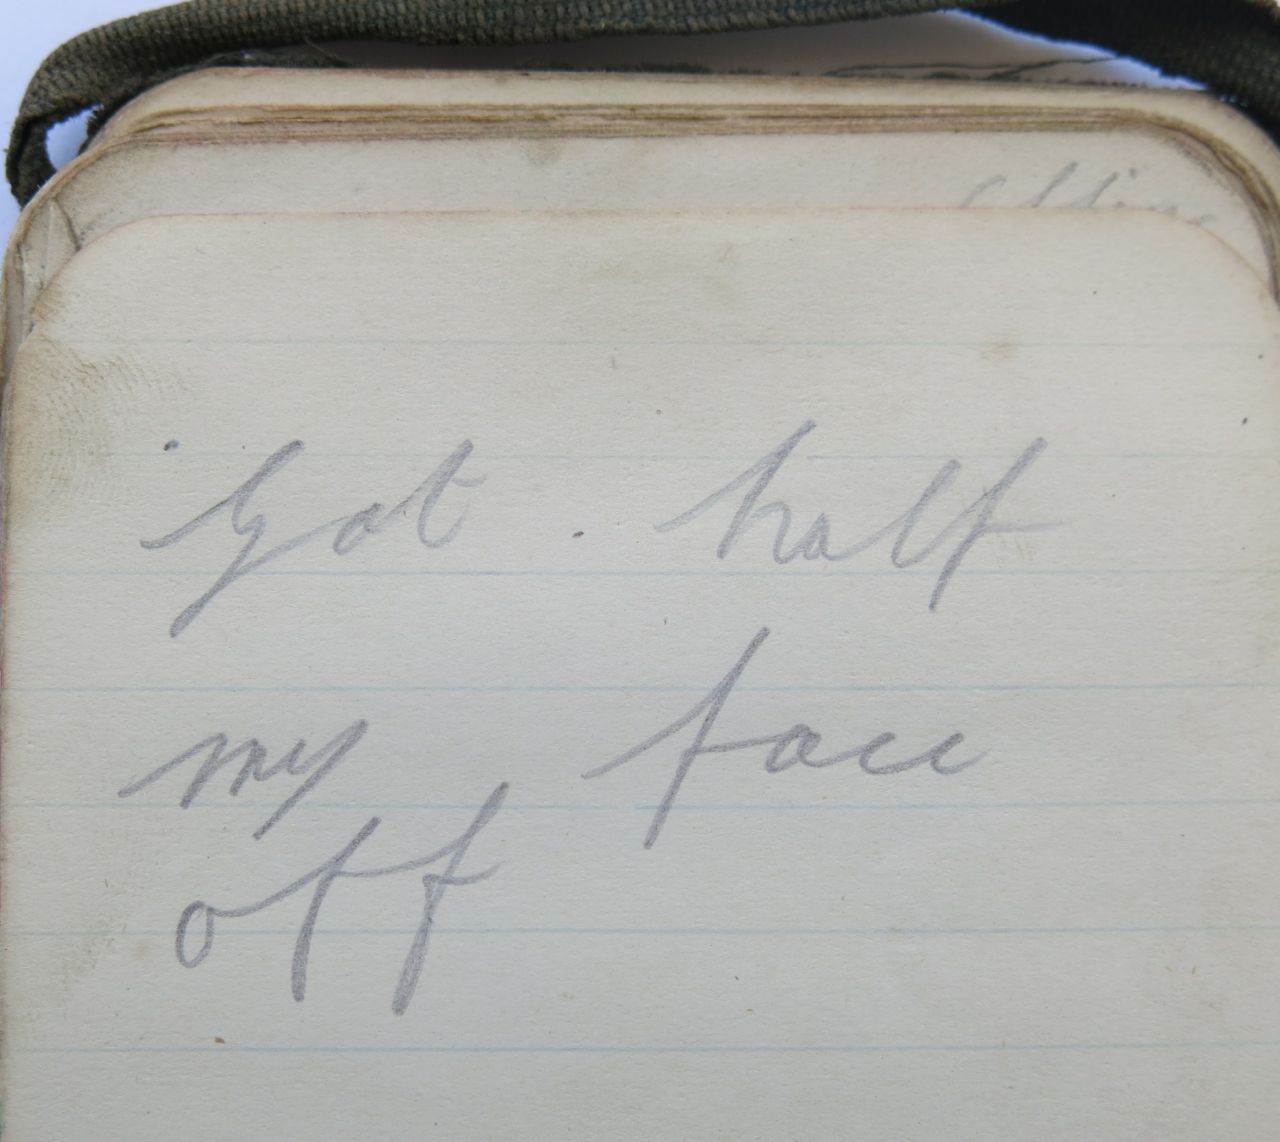 Got half
my face
off